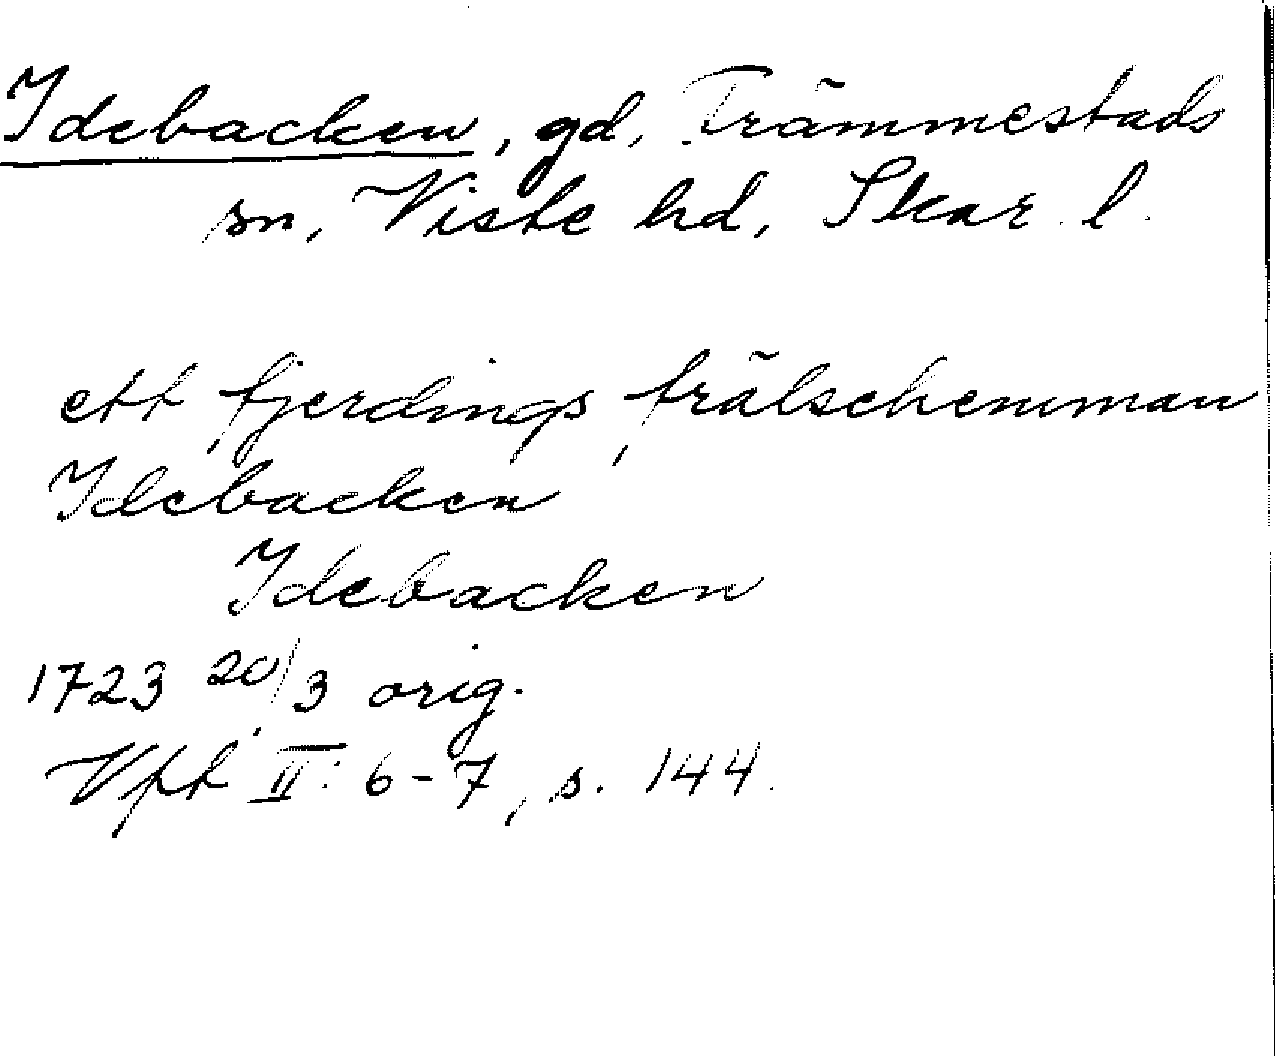 Idebacken, gd, Trämmestads
sn, Viste hd, Skar. l.
ett fjerdings frälschemman
Idebacken
Idebacken
1723 20/3 orig.
Vft II: 6-7, s. 144.